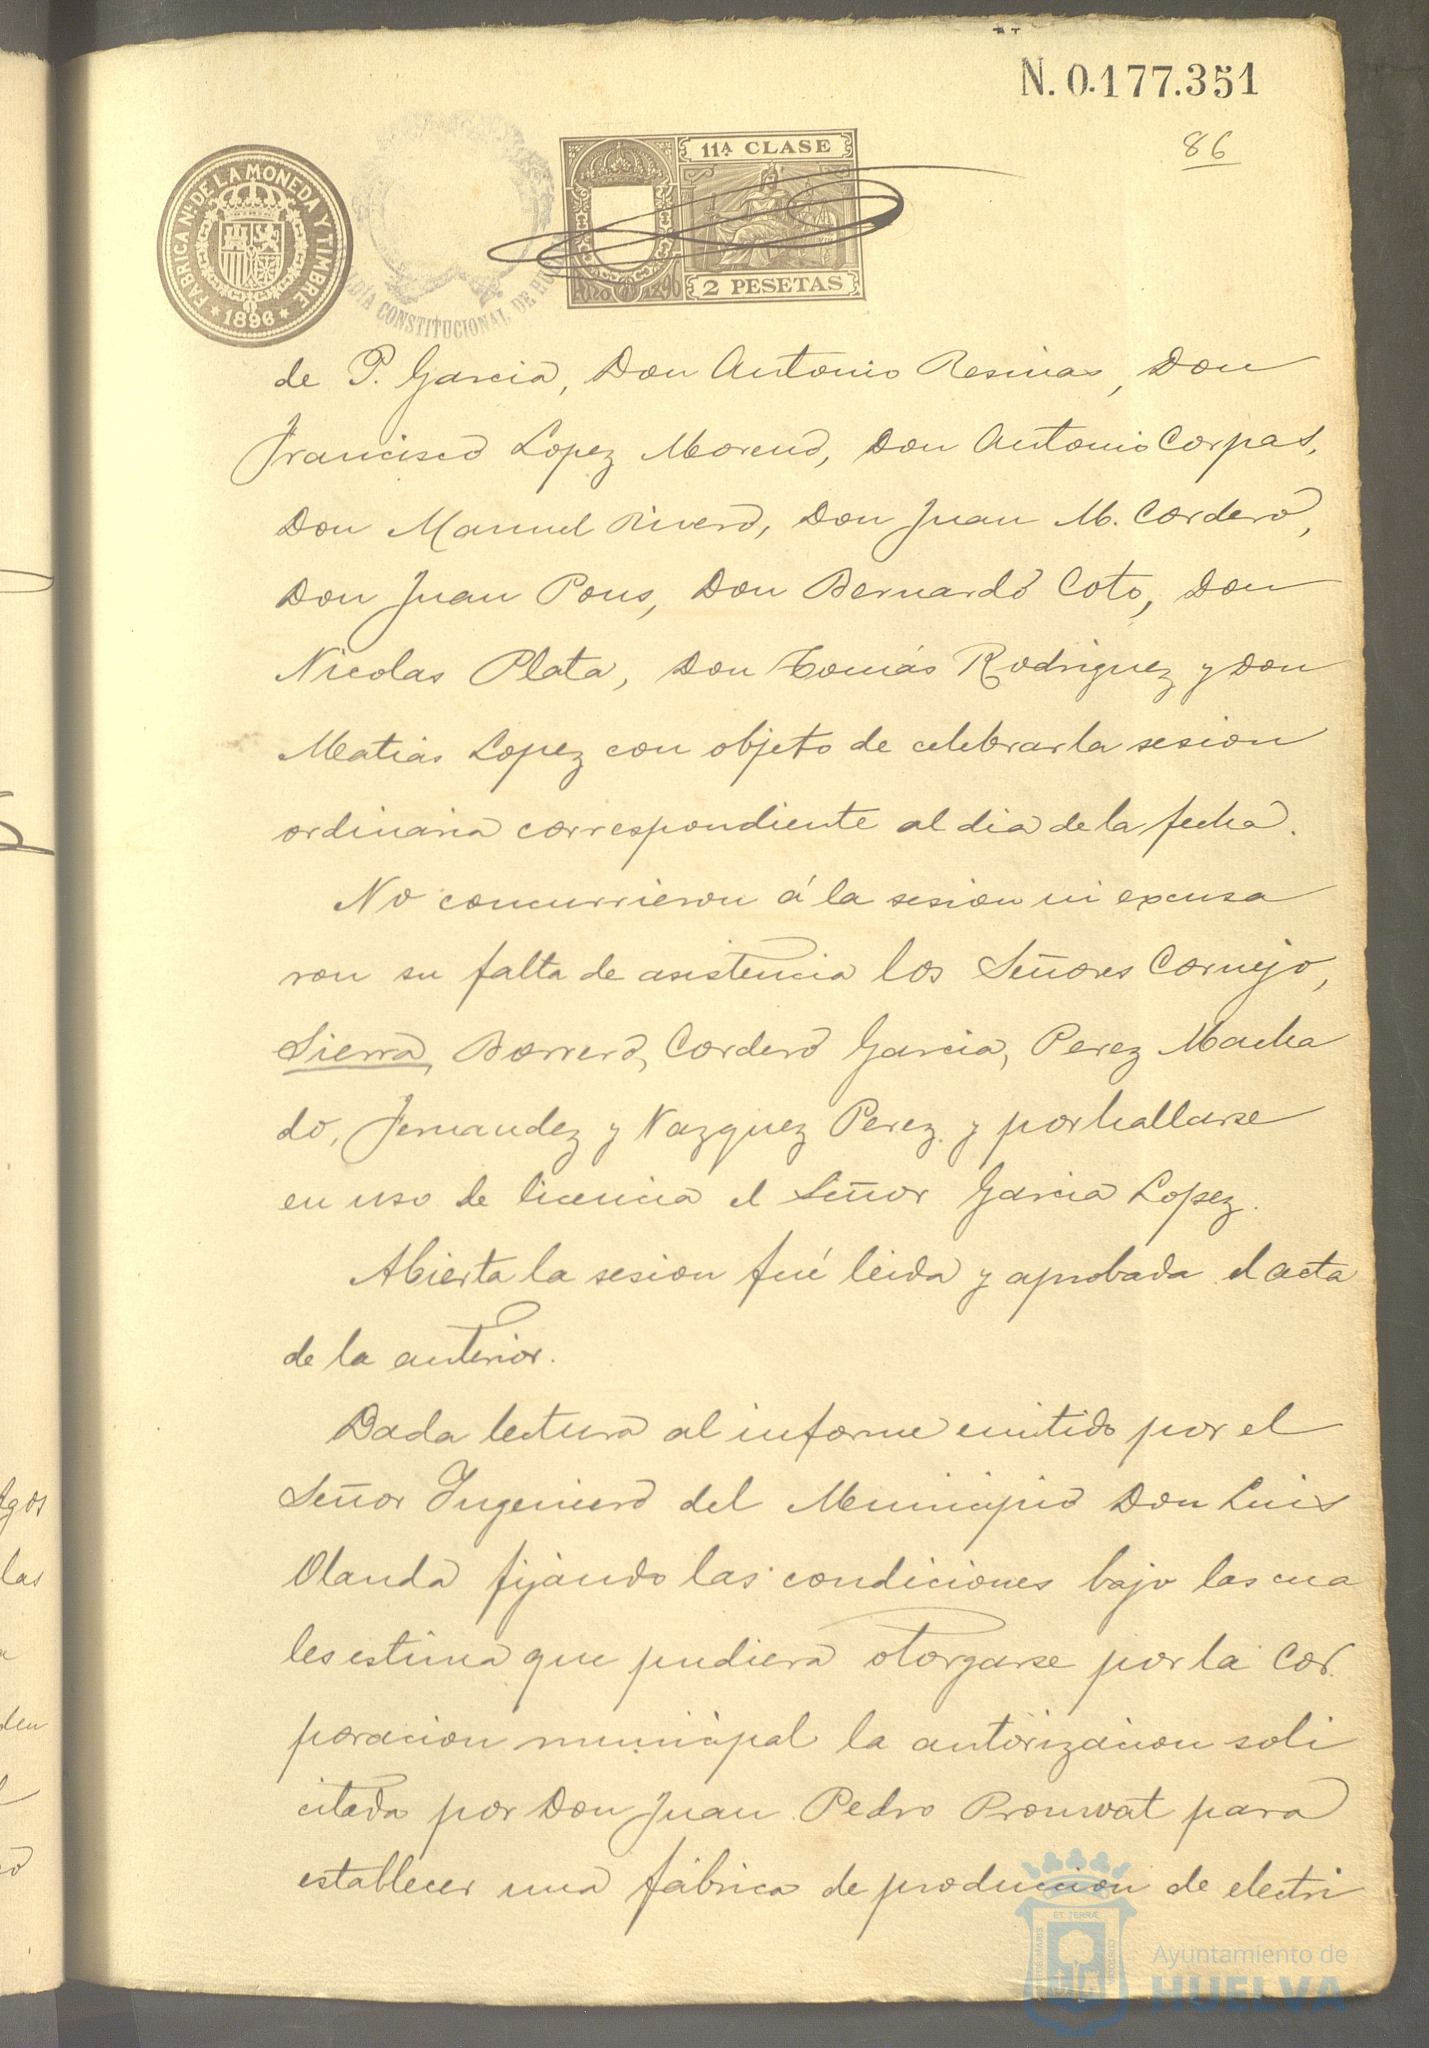 N. 0.177.351
86
FABRICA NAL DE LA MONEDA Y TIMBRE
* 1896 *
11ª CLASE
2 PESETAS
CONSTITUCIONAL DE
de P. Garcia, Don Antonio Resinas, Don
Francisco Lopez Moreno, Don Antonio Corpas,
Don Manuel Rivero, Don Juan M. Cordero,
Don Juan Pons, Don Bernardo Coto, Don
Nicolas Plata, Don Tomás Rodriguez y Don
Matias Lopez con objeto de celebrar la sesion
ordinaria correspondiente al dia de la fecha.
No concurrieron á la sesion ni excusa
ron su falta de asistencia los Señores Cornejo,
Sierra, Borrero, Cordero Garcia, Perez Macha
do, Fernandez y Vazquez Perez y por hallarse
en uso de licencia el Señor Garcia Lopez.
Abierta la sesion fué leida y aprobada el acta
de la anterior.
Dada lectura al informe emitido por el
Señor Ingeniero del Municipio Don Luis
Olanda fijando las condiciones bajo las cua
les estima que pudiera otorgarse por la Cor
poracion municipal la autorizacion soli
citada por Don Juan Pedro para
establecer una fábrica de produccion de electri
Ayuntamiento de
HUELVA